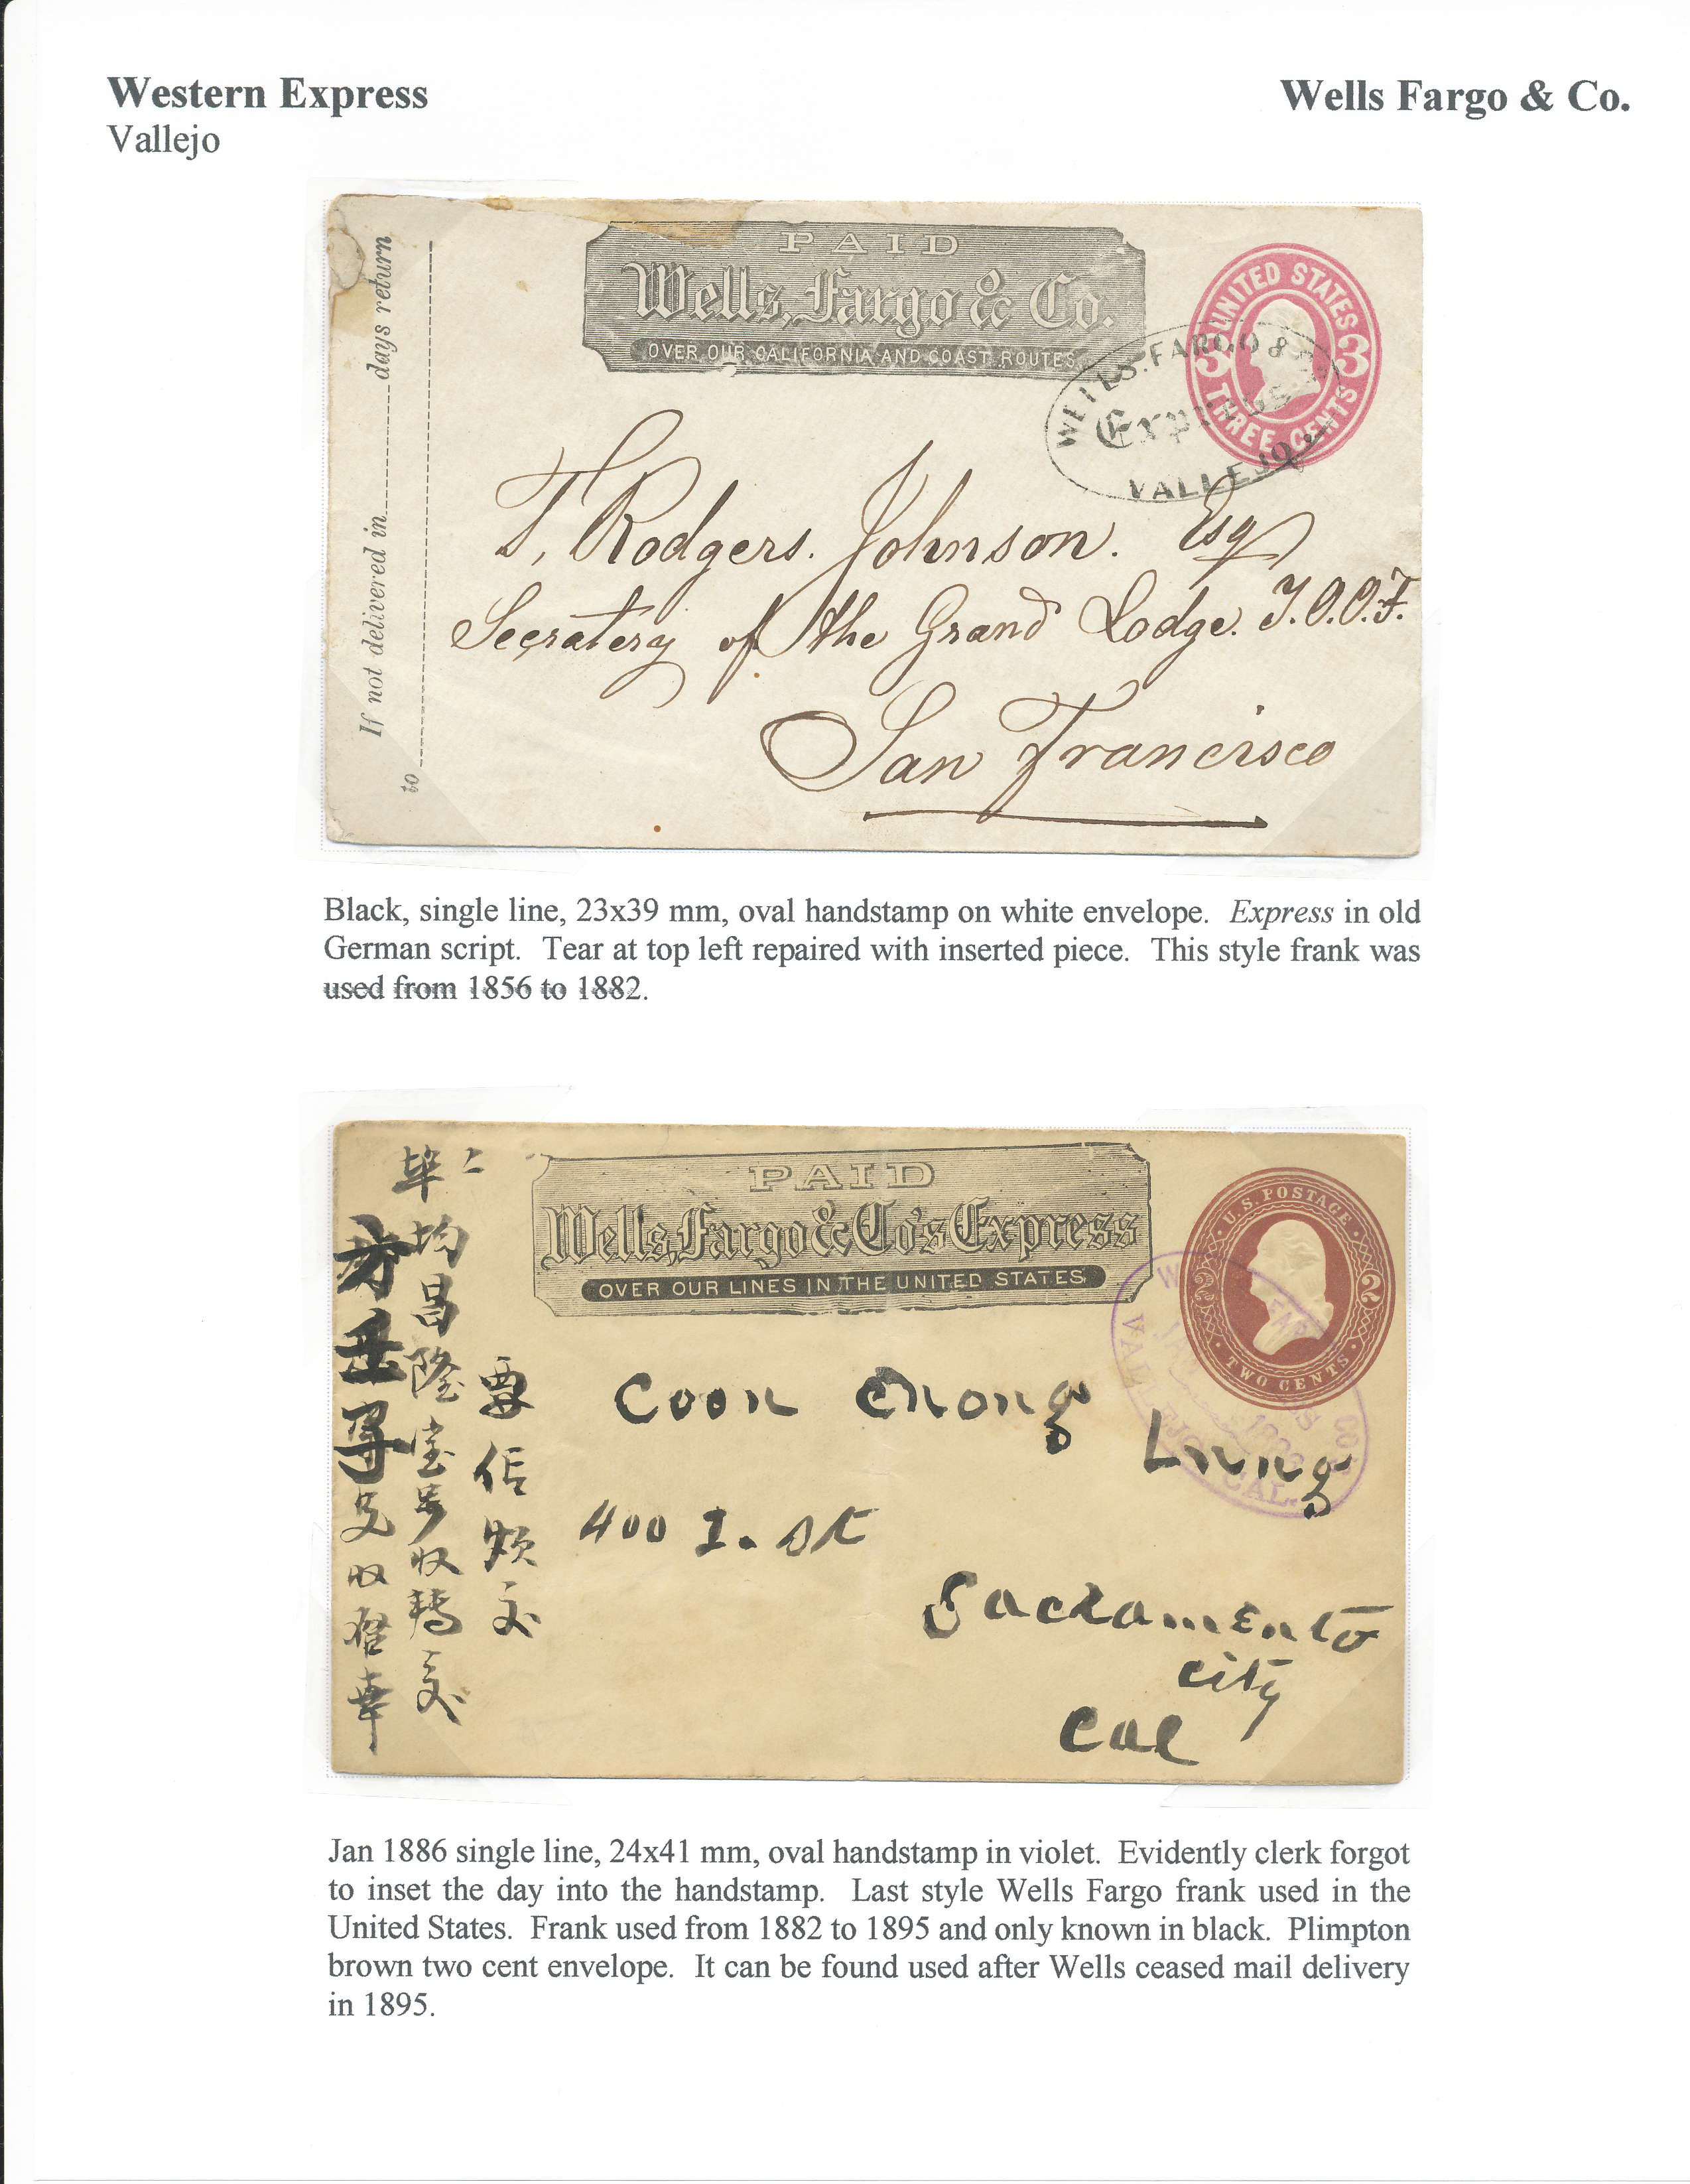 Western Express
Wells Fargo & Co.
Vallejo
If not delivered in days return
to
PAID
Wells, Fargo & Co.
OVER OUR CALIFORNIA AND COAST ROUTES
UNITED STATES
3 3
THREE CENTS
WELLS. FARGO &
Express
VALLEJO
T, Rodgers. Johnson. Esq
Secratery of the Grand Lodge. I.O.O.F.
San Francisco
Black, single line, 23x39 mm, oval handstamp on white envelope. Express in old
German script. Tear at top left repaired with inserted piece. This style frank was
used from 1856 to 1882.
PAID
Wells, Fargo & Co's Express
OVER OUR LINES IN THE UNITED STATES
U.S. POSTAGE
2 2
TWO CENTS
VALLEJO CAL.
要信煩交
埠均昌隆宝号收轉交
收
Coon Chong
Lung
400 I. St
Sacramento
city
Cal
Jan 1886 single line, 24x41 mm, oval handstamp in violet. Evidently clerk forgot
to inset the day into the handstamp. Last style Wells Fargo frank used in the
United States. Frank used from 1882 to 1895 and only known in black. Plimpton
brown two cent envelope. It can be found used after Wells ceased mail delivery
in 1895.